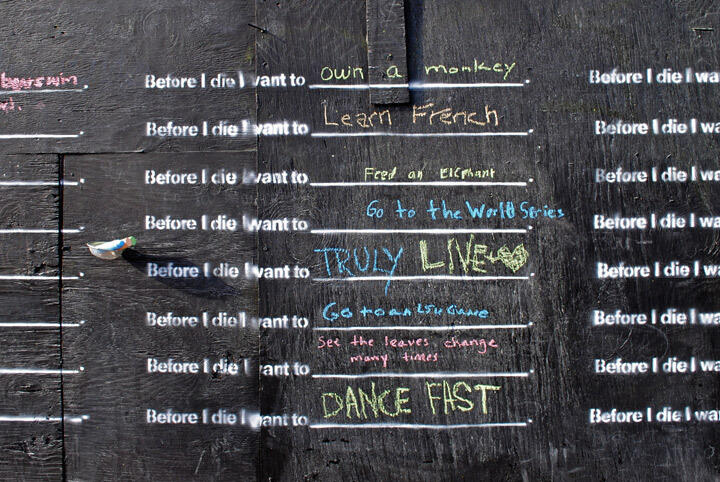 Before I die I want to own a monkey.
Before I die I wa
Before I die I want to Learn French.
Before I die I wa
Before I die I want to Feed an Elephant.
Before I die I wa
Before I die I want to Go to the World Series.
Before I die I wa
Before I die I want to TRULY LIVE.
Before I die I wa
Before I die I want to Go to an LSU Game.
Before I die I wa
See the leaves change
Before I die I want to many times.
Before I die I wa
Before I die I want to DANCE FAST.
Before I die I wa